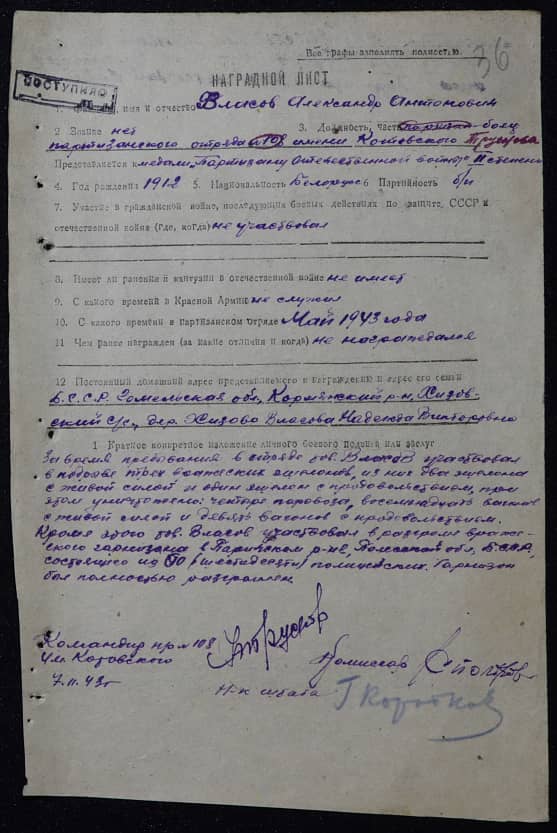 Все графы заполнять полностью.
36
НАГРАДНОЙ ЛИСТ
ПОСТУПИЛО
1. имя и отчество Власов Александр Антонович
2 Звание нет 3. Должность, часть боец
партизанского отряда №108 имени Котовского
Представляется к медали „Партизану Отечественной войны" II степени
4. Год рождения 1912 5. Национальность Белорус 6 Партийность б/п
7. Участие в гражданской войне, последующих боевых действиях по защите СССР и
отечественной войне (где, когда) не участвовал
8. Имеет ли ранения и контузии в отечественной войне не имеет
9. С какого времени в Красной Армии не служил
10. С какого времени в партизанском отряде Май 1943 года
11 Чем ранее награжден (за какие отличия и когда) не награждался
12 Постоянный домашний адрес представляемого к награждению и адрес его семьи
Б.С.С.Р. Гомельская обл, Кормянский р-н, Хизов-
ский с/с, дер. Хизово Власова Надежда Викторовна
1 Краткое конкретное изложение личного боевого подвига или заслуг
За время пребывания в отряде тов. Власов участвовал
в подрыве трех вражеских эшелонов, из них два эшелона
с живой силой и один эшелон с продовольствием, при
этом уничтожено: четыре паровоза, восемнадцать вагонов
с живой силой и девять вагонов с продовольствием.
Кроме этого тов. Власов участвовал в разгроме враже-
ского гарнизона в Паричском р-не, Полесской обл. Б.С.С.Р.
состоящего из 60 (шестидесяти) полицейских. Гарнизон
был полностью разгромлен.
Командир пр № 108
им. Котовского
Комиссар
7.11.43г
Н-к штаба